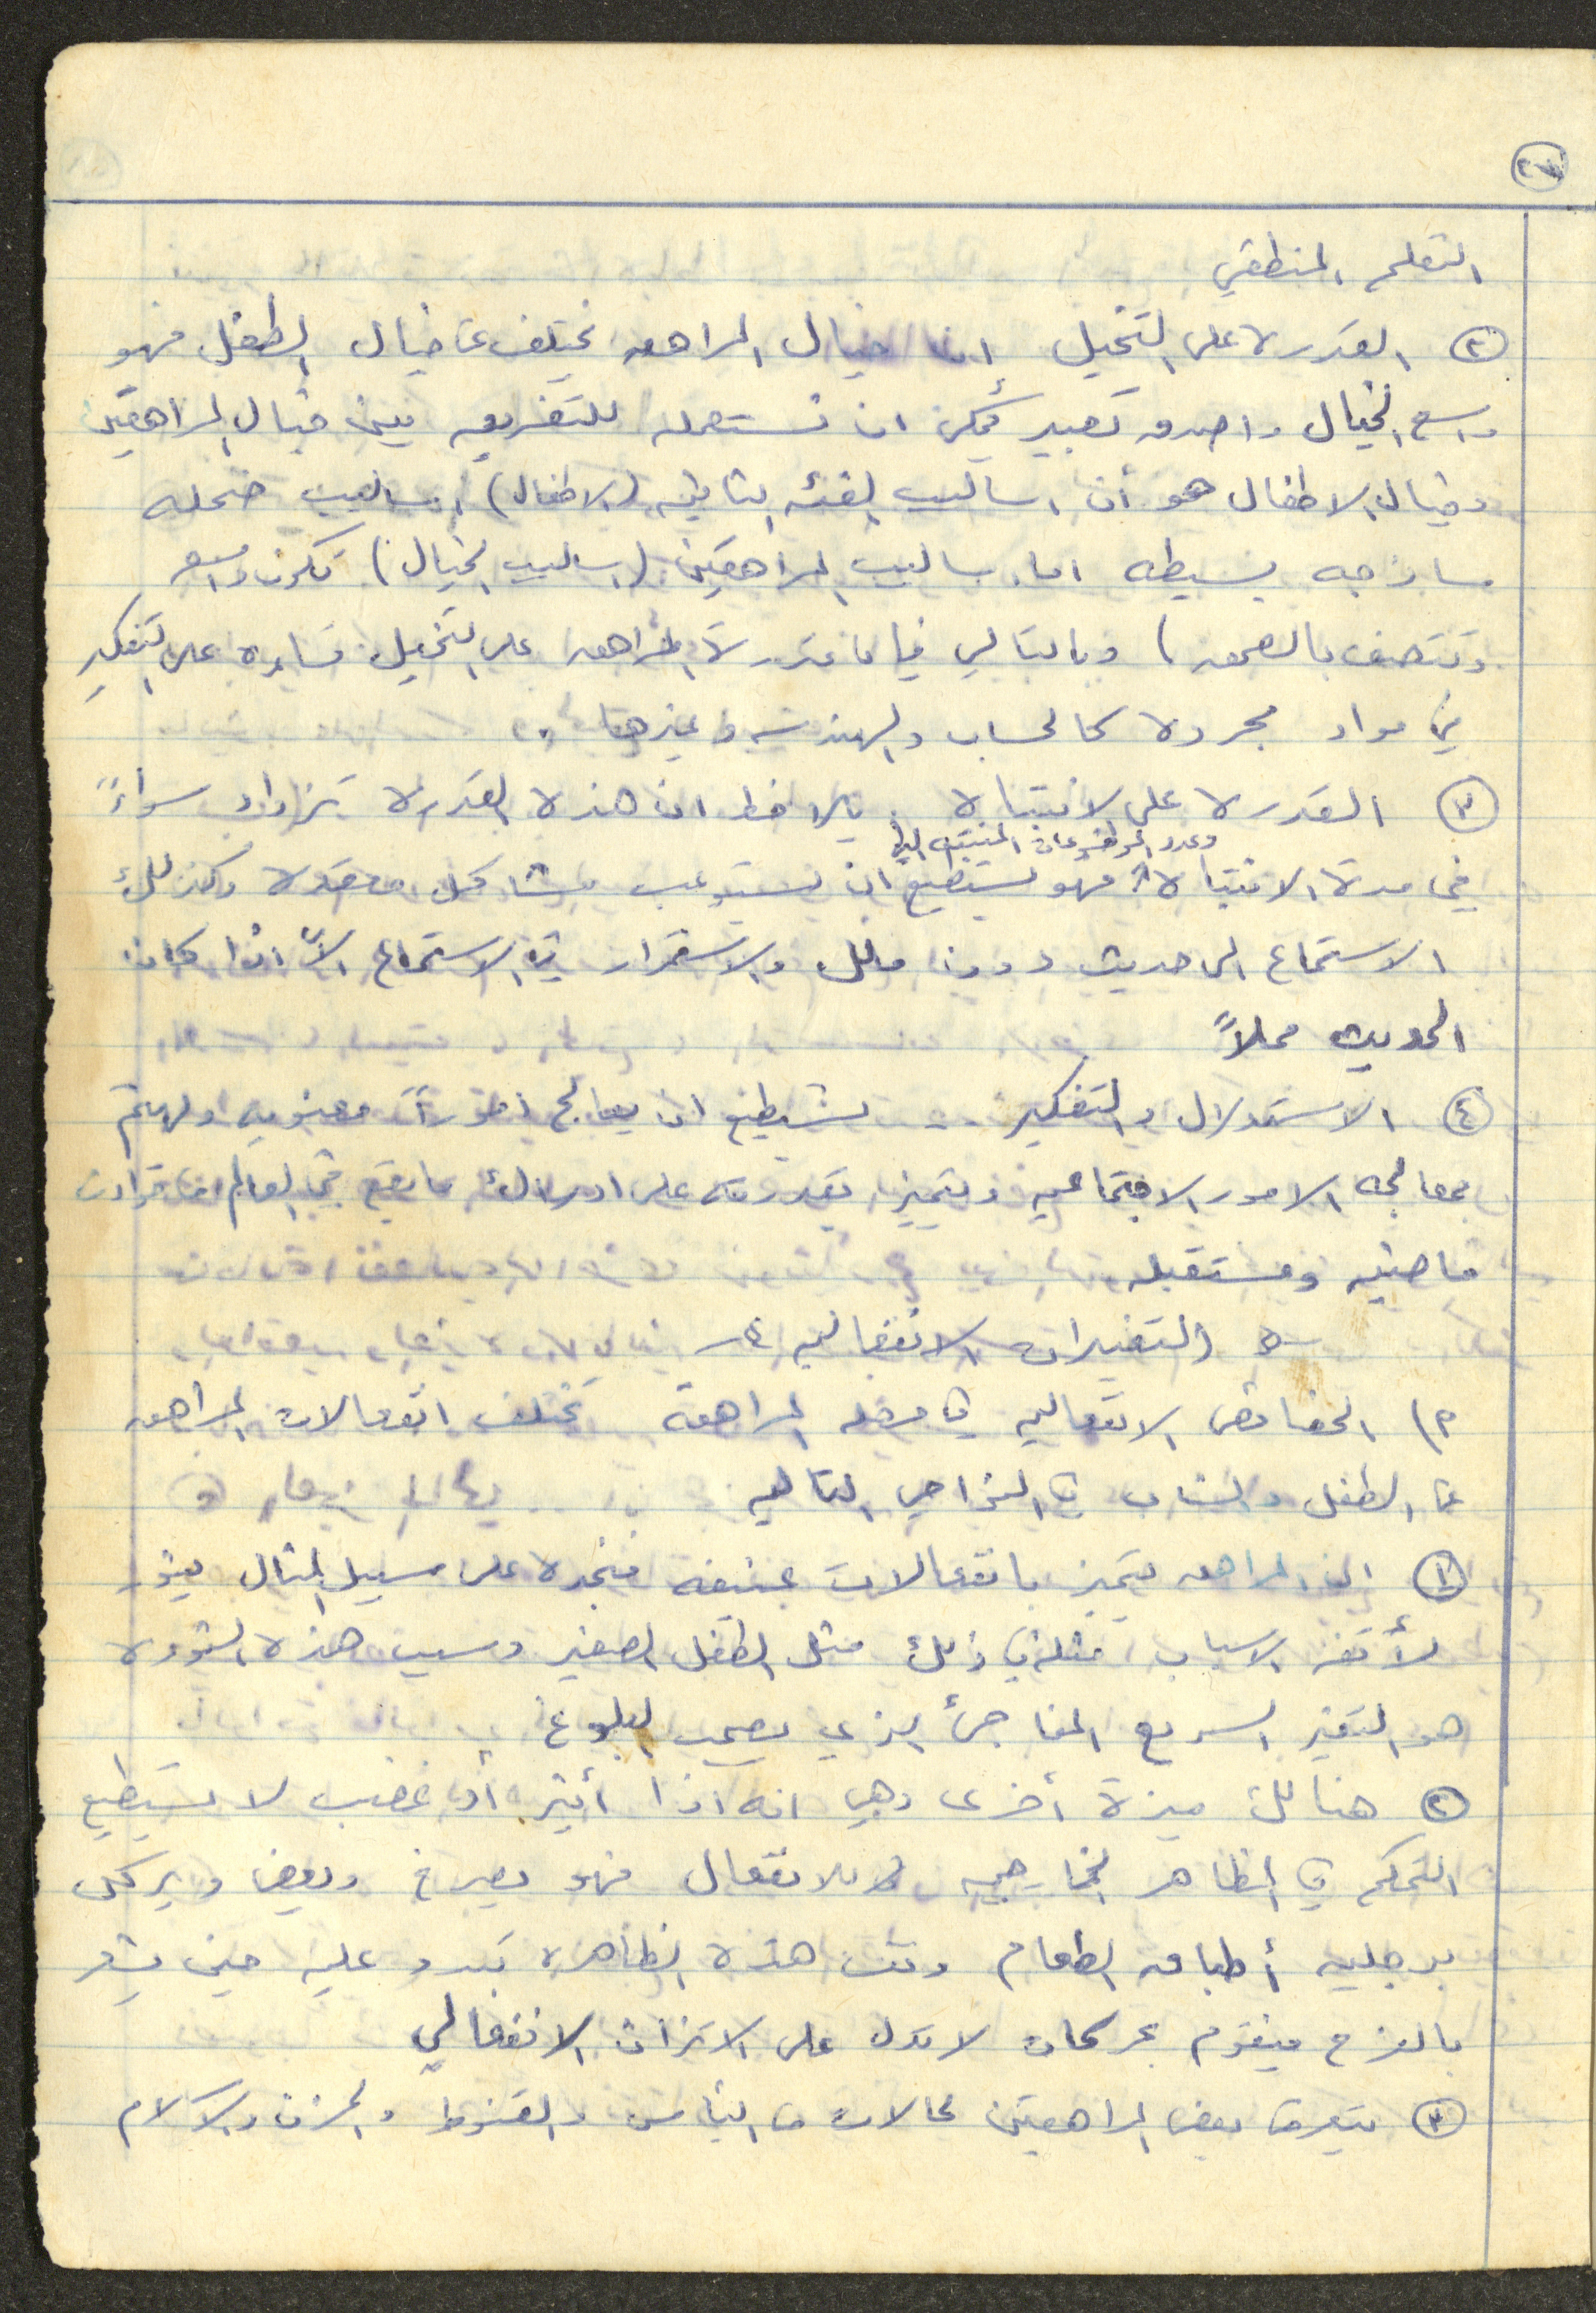 التعلم المنطقي
② القدرة على التخيل ان خيال المراهق يختلف عن خيال الطفل فهو
واسع الخيال واصدق تعبير يمكن ان نستعمله للتفريق بين خيال المراهقين
وخيال الاطفال هو أن اساليب الفئه الثانيه (الاطفال) اساليب ضحله
ساذجه بسيطه اما اساليب المراهقين (اساليب الخيال) تكون واسعه
وتتصف بالعمق) وبالتالي فإن قدرة المراهق على التخيل تساعده على التفكير
في مواد مجرده كالحساب والهندسه وغيرها .
③ القدرة على الانتباه . يلاحظ ان هذه القدره تزداد سواءً
وعدد الموضوعات المنتبه اليها
في مدة الانتباه فهو يستطيع ان يستوعب مشاكل معقده وكذلك
الاستماع الى حديث دون ملل والاستمرار في الاستماع الاّ اذا كان
الحديث مملاً
④ الاستدلال والتفكير .. يستطيع ان يعالج اموراً معنويه ويهتم
بمعالجه الامور الاجتماعيه ويتميز بقدرته على ادراك ما يقع في العالم من حوادث
ماضيه ومستقبله
التغيرات الانفعاليه
م) الخصائص الانفعاليه في مرحله المراهقة تختلف انفعالات المراهق
عن الطفل والشاب في النواحي التاليه
① ان المراهق يتميز بانفعالات عنيفه فنجده على سبيل المثال يثور
لأتفه الاسباب مثله في ذلك مثل الطفل الصغير وسبب هذه الثوره
هو التغير السريع المفاجئ الذي يصحب البلوغ
② هنالك ميزة أخرى وهي انه اذا أثير أو غضب لا يستطيع
التحكم في المظاهر الخارجيه للانفعال فهو يصرخ ويعض ويركل
برجليه أطباق الطعام ونفس هذه الظاهره تبدو عليه حين يشعر
بالفرح فيقوم بحركات لا تدل على الاتزان الانفعالي
③ يتعرض بعض المراهقين لحالات من اليأس والقنوط والحزن والآلام